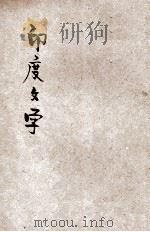 印度文学
mtoou.info